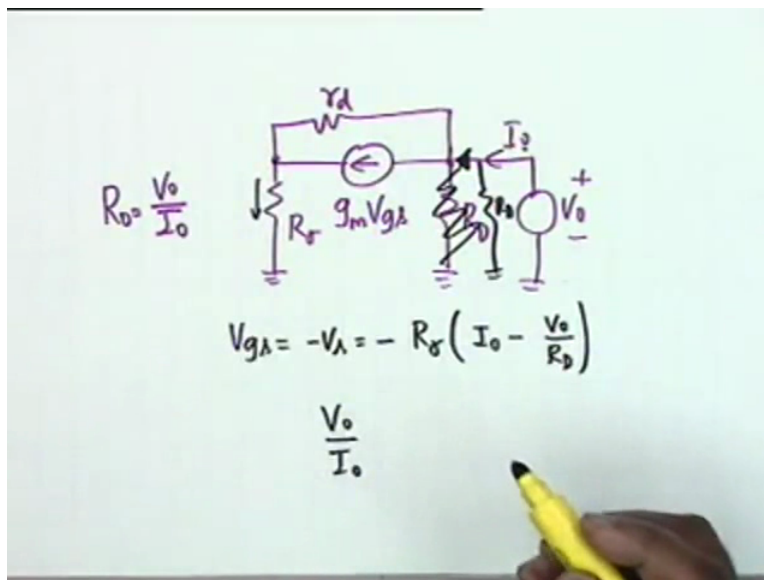 rd
I₀
R₀ = V₀/I₀
Rs
gmVgs
RD
RD
+
V₀
-
Vgs = -Vs = - Rs ( I₀ - V₀/RD )
V₀/I₀